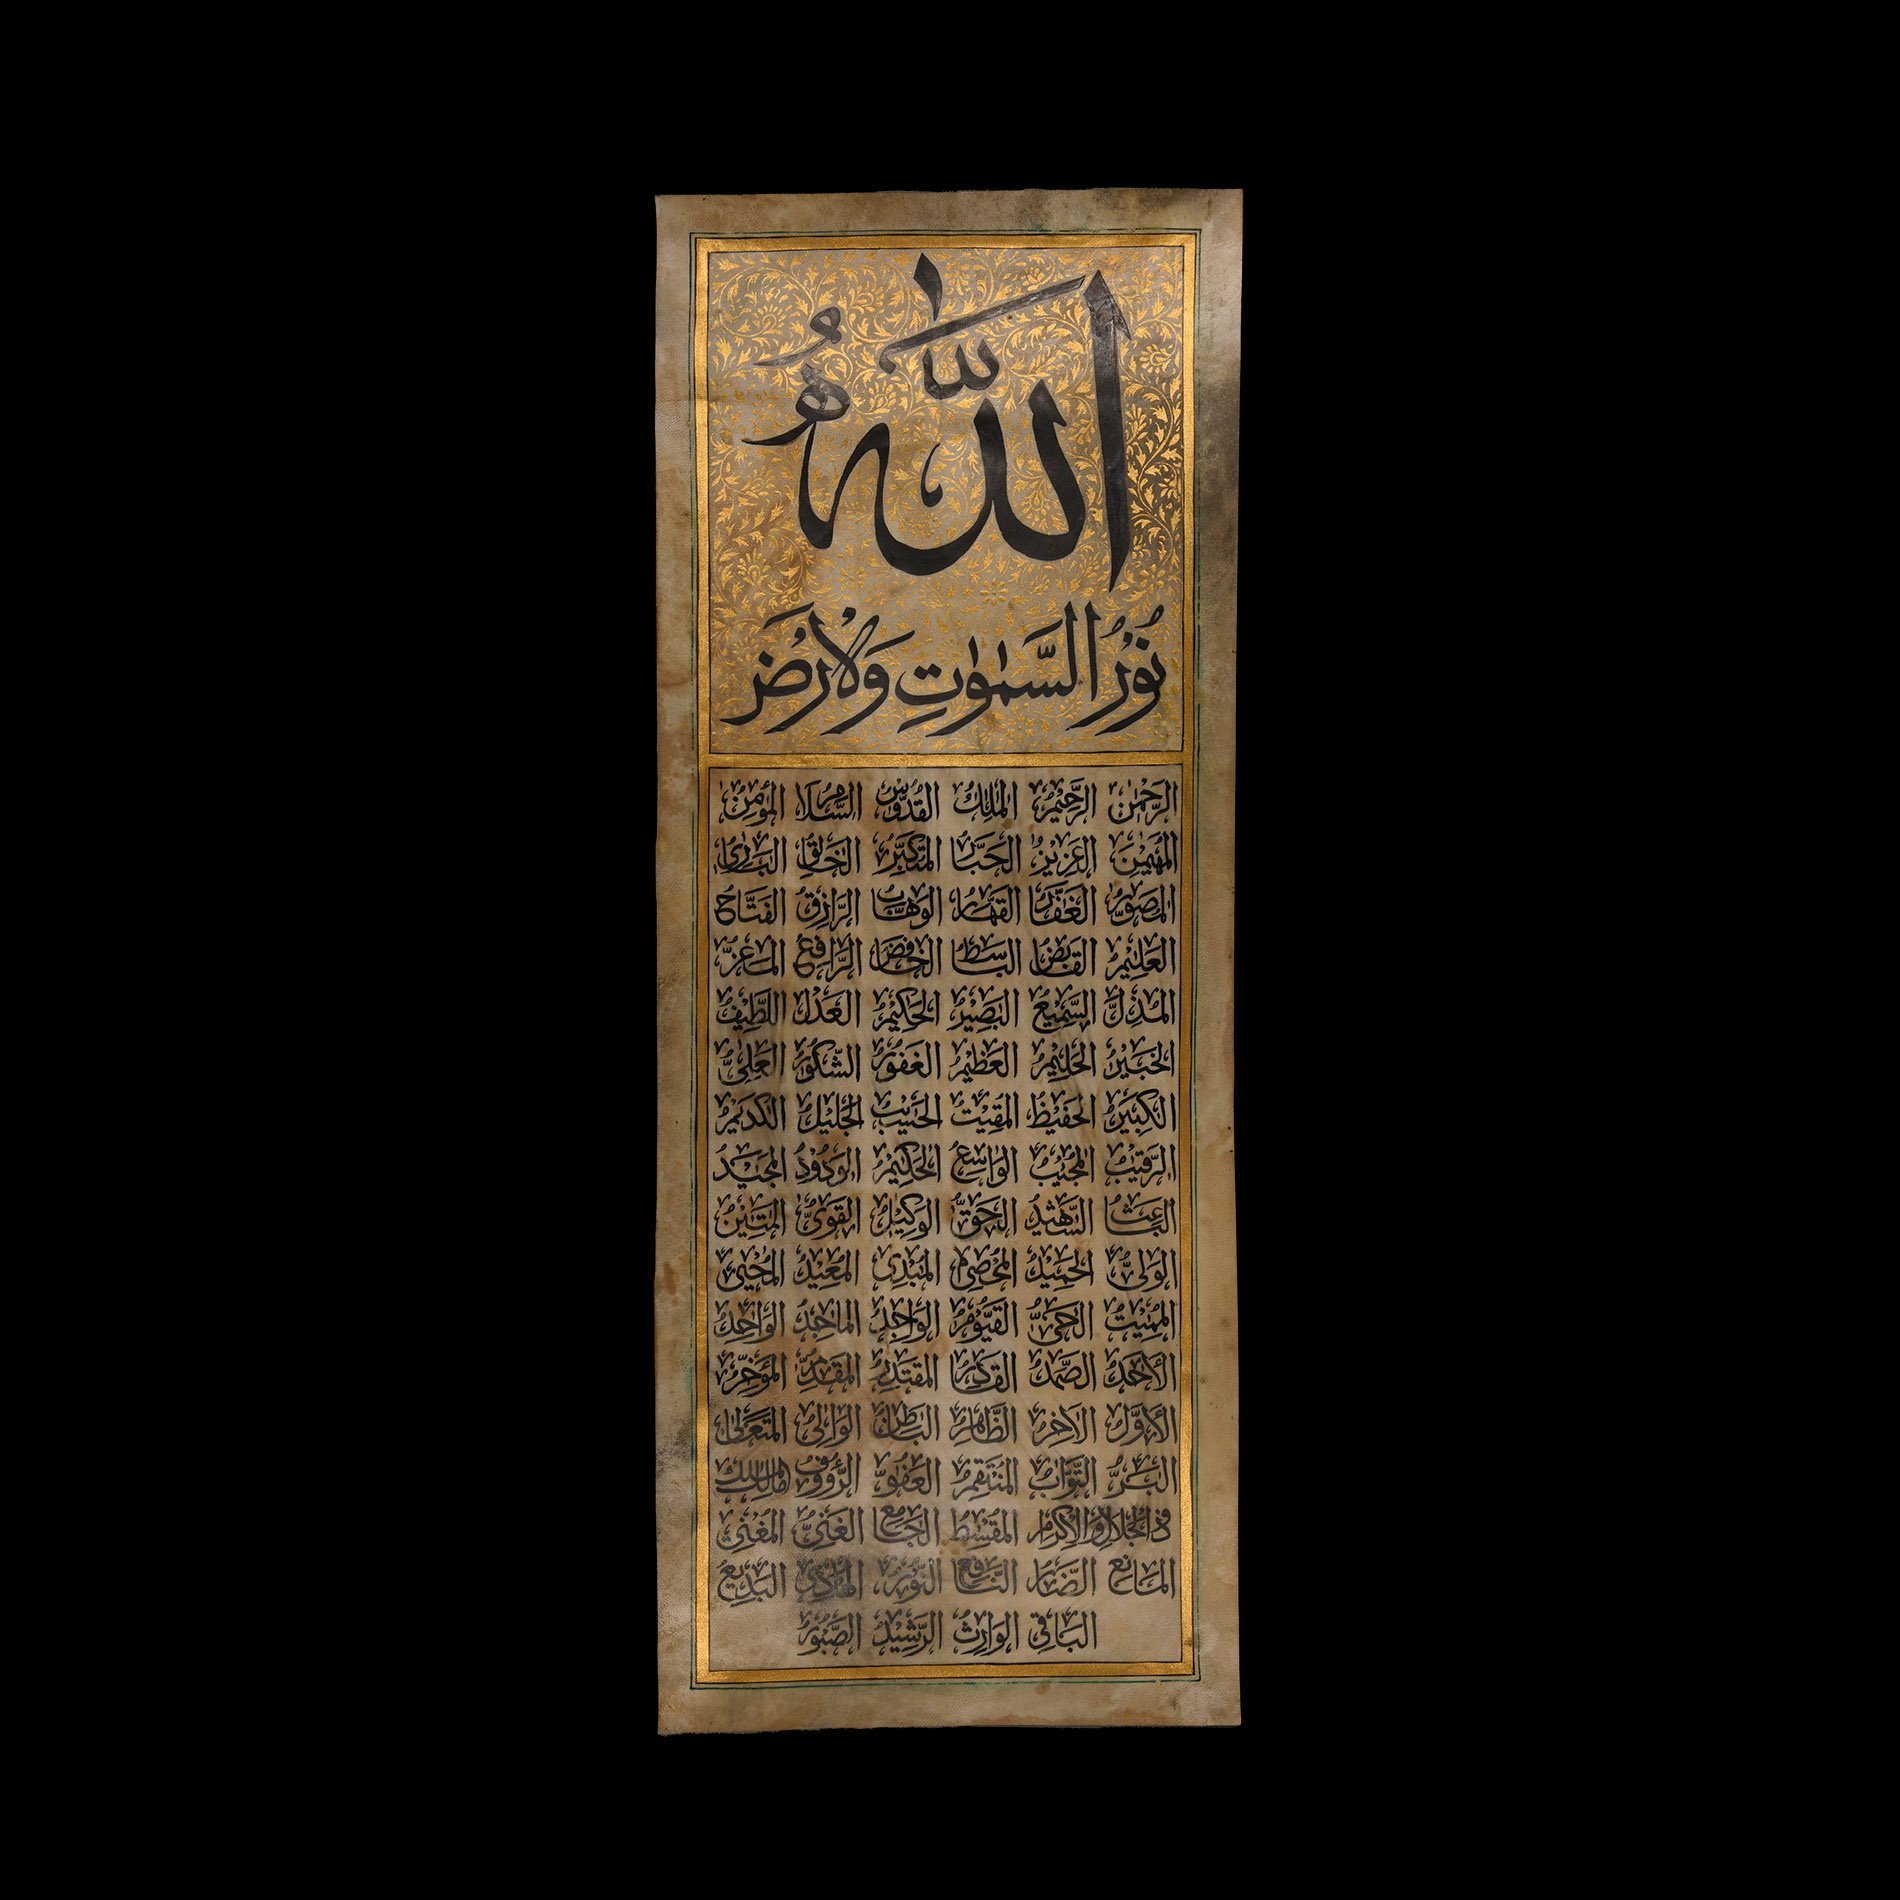 اللّٰهُ
نُوْرُ السَّمٰوٰتِ وَلْاَرْضَ
الرَّحْمٰن الرَّحِيْمُ المَلِكُ القُدُّوْسُ السَّلَامُ المُؤْمِنُ
المُهَيْمِنَ العَزِيْزُ الجَبَّارُ المُتَكَبِّرُ الخَالِقُ البَارِئُ
المُصَوِّرُ الغَفَّارُ القَهَّارُ الوَهَّابُ الرَّازِقُ الفَتَّاحُ
العَلِيْمُ القَابِضُ البَاسِطُ الخَافِضُ الرَّافِعُ المَاعِزُّ
المُذِلَّ السَّمِيعُ البَصِيْرُ الحَاكِيْمُ العَدْلُ اللَّطِيْفُ
الخَبَيْرُ الحَلِيْمُ العَظِيْمُ الغَفُورُ الشَّكُورُ العَلِىُّ
الكَبِيَرُ الحَفِيْظُ المُقِيْتُ الحَسِيْبُ الجَلِيْلُ الكَدِيَمُ
الرَّقِيْبُ المُجِيْبُ الوَاسِعُ الحَكِيْمُ الوَدُوْدُ المَجِيَدُ
البَاعِثُ الشَّهِيْدُ الحَقُّ الوَكِيْلُ القَوِىُّ المَتَيْنُ
الوَلِىُّ الحَمِيْدُ المُحْصِى المُبْدِى المُعِيْدُ المُحْيِى
المُمِيْتُ الحَىُّ القَيُّوْمُ الوَاجِدُ المَاجِدُ الوَاحِدُ
الأَحَدُ الصَّمَدُ القَادِرُ المُقْتَدِرُ المُقَدِّمُ المُؤَخِّرُ
الأَوَّلُ الآخِرُ الظَّاهِرُ البَاطِنُ الوَالِى المُتَعَالِ
البَرُّ التَّوَّابُ المُنْتَقِمُ العَفُوُّ الرَّؤُوفُ مَالِكُ المُلْكِ
ذُوالجَلَالِ وَالْاِكْرَامِ المُقْسِطُ الجَامِعُ الغَنِىُّ المُغْنِىْ
المَانِعُ الضَّارُ النَّافِعُ النُّوْرُ الهَادِى البَدِيْعُ
البَاقِى الوَارِثُ الرَّشِيْدُ الصَّبُوْرُ